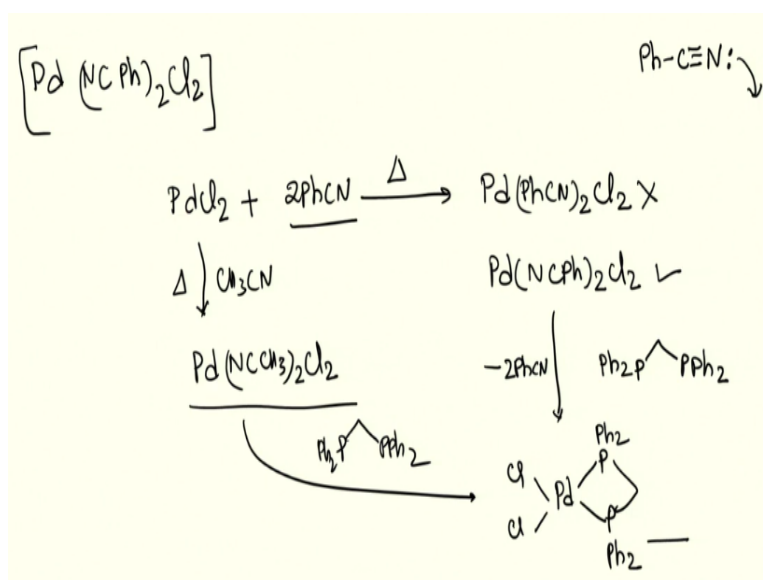 [Pd (NCPh)₂Cl₂]
Ph-C≡N:
PdCl₂ + 2PhCN Δ Pd(PhCN)₂Cl₂ X
Δ CH₃CN
Pd(NCPh)₂Cl₂ ✓
Pd(NCCH₃)₂Cl₂
-2PhCN Ph₂P PPh₂
Ph₂P PPh₂
Ph₂
Cl P
Pd
Cl P
Ph₂